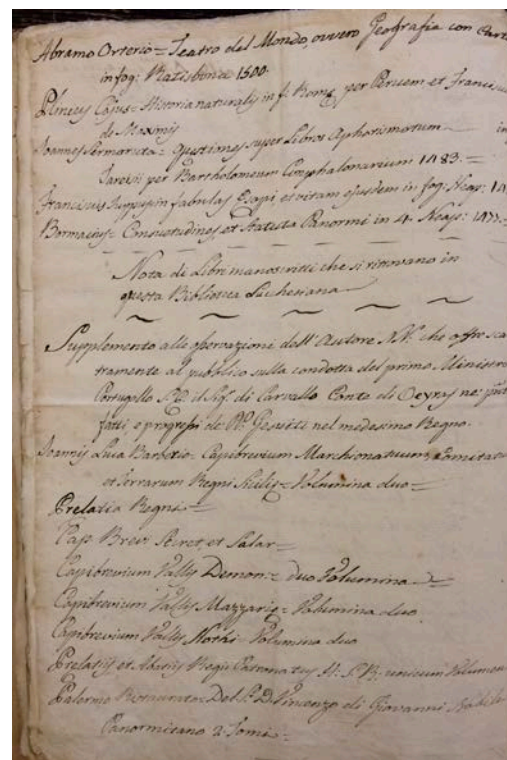 Abramo Orterio = Teatro del Mondo, ovvero Geografia con Carte
in fog: Ratisbona 1500.
Plinius Cajus = Historia naturalis in f. Romę per Petrum et Franciscu
de Maximis
Joannes Sermoneta = Questiones super Libros Aphorismorum in
Tarvisii per Bartholomeum Comphalonarium 1483. =
Franciscus Tuppus in fabulas Esopi et vitam ejusdem in fog: Neap: 14
Consuetudines et Statuta Panormi in 4. Neap: 1477
Nota di Libri manoscritti che si ritrovano in
questa Biblioteca Lucchesiana
Supplemento alle osservazioni dell'Autore N.N. che offre
tramente al pubblico sulla condotta del primo Ministro
Portugallo S.E. il Sig. di Carvallo Conte di Oeyras ne:
fatti, e progressi de: PP. Gesuiti nel medesimo Regno.
Joannis Luca Barberio = Capibrevium Marchionatuum, Comitatu
et Terrarum Regni Sicilię = Volumina duo =
Prelatia Regni =
Cap. Brev: Secret. et Salar =
Capibrevium Vallis Demon = duo Volumina =
Capibrevium Vallis Mazzarię = Volumina duo
Capibrevium Vallis Nothi Volumina duo
Prelatiis et Abatiis Regii Patronatus unicum Volumen
Palermo Restaurato = Del S. D. Vincenzo di Giovanni
Panormitano 2 Tomi =